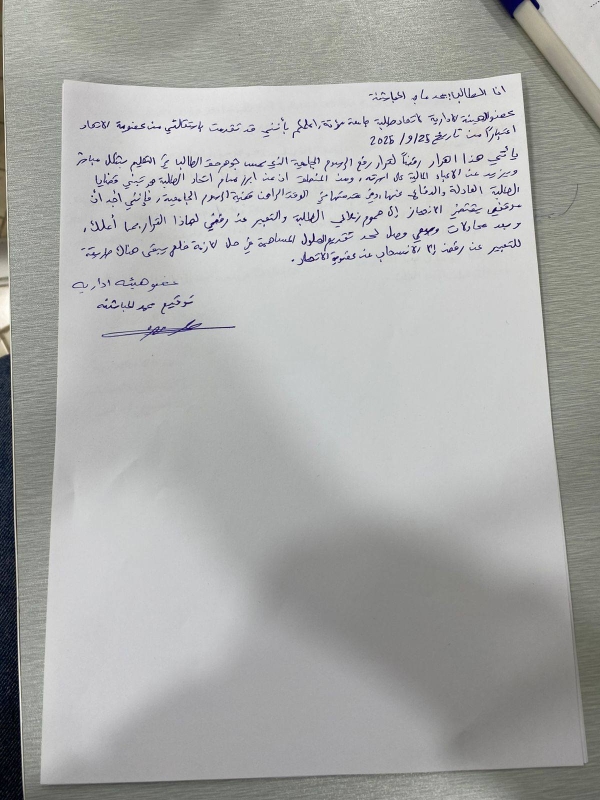 انا الطالب محمد ماجد المباشنة
عضو الهيئة الادارية لاتحاد طلبة جامعة مؤتة، اعلمكم بأنني قد تقدمت باستقالتي من عضوية الاتحاد
اعتباراً من تاريخ 2025/9/25
يأتي هذا القرار رفضاً لقرار رفع الرسوم الجامعية الذي يمس جوهر حق الطالب في التعليم بشكل مباشر
ويزيد من الاعباء المالية على اسرته، ومن المنطلق ان من ابرز مهام اتحاد الطلبة هو تبني قضايا
الطلبة العادلة والدفاع عنها، وفي مقدمتها في الوقت الراهن قضية الرسوم الجامعية، فإنني اجد ان
موقعي يقتضي الانحياز إلى هموم زملائي الطلبة والتعبير عن رفضي لهذا القرار، كما أعلنت
وبعد محاولات وصل لحد تقديم الحلول للمساهمة في حل الازمة فلم يبقى هناك طريقة
للتعبير عن رفضنا إلا الانسحاب من عضوية الاتحاد.
عضو هيئة ادارية
توقيع محمد المباشنة